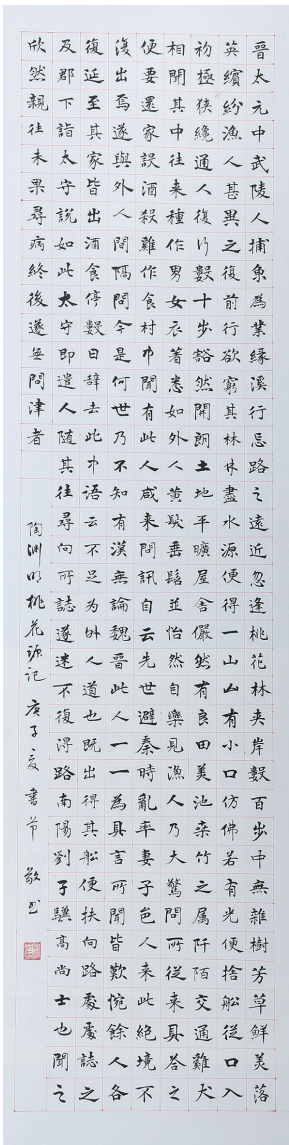 晉太元中武陵人捕魚為業緣溪行忘路之遠近忽逢桃花林夾岸數百步中無雜樹芳草鮮美落
英繽紛漁人甚異之復前行欲窮其林林盡水源便得一山山有小口仿佛若有光便捨船從口入
初極狹纔通人復行數十步豁然開朗土地平曠屋舍儼然有良田美池桑竹之属阡陌交通雞犬
相聞其中往来種作男女衣著悉如外人黃髮垂髫並怡然自樂見漁人乃大驚問所從来具答之
便要還家設酒殺雞作食村中聞有此人咸来問訊自云先世避秦時亂率妻子邑人来此絕境不
復出焉遂與外人間隔問今是何世乃不知有漢無論魏晉此人一一為具言所聞皆歎惋餘人各
復延至其家皆出酒食停數日辭去此中語云不足為外人道也既出得其船便扶向路處處誌之
及郡下詣太守說如此太守即遣人隨其往尋向所誌遂迷不復得路南陽劉子驥高尚士也聞之
欣然親往未果尋病終後遂無問津者
陶淵明桃花源記 庚子夏書 敬书